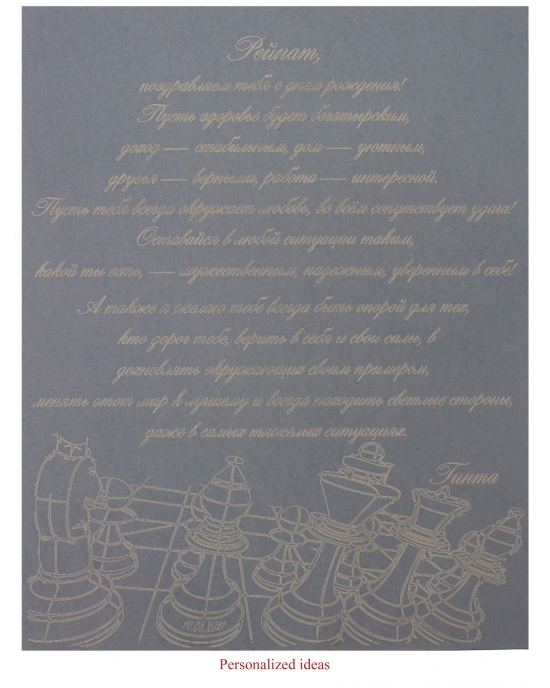 Рейнат,
поздравляем тебя с днем рождения!
Пусть здоровье будет богатырским,
доход — стабильным, дом — уютным,
друзья — верными, работа — интересной.
Пусть тебя всегда окружает любовь, во всём сопутствует удача!
Оставайся в любой ситуации таким,
какой ты есть, — мужественным, надежным, уверенным в себе!
А также я желаю тебе всегда быть опорой для тех,
кто дорог тебе, верить в себя и свои силы, в
дохновлять окружающих своим примером,
менять этот мир к лучшему и всегда находить светлые стороны,
даже в самых тяжелых ситуациях.
Гинта
10.03.2021
Personalized ideas